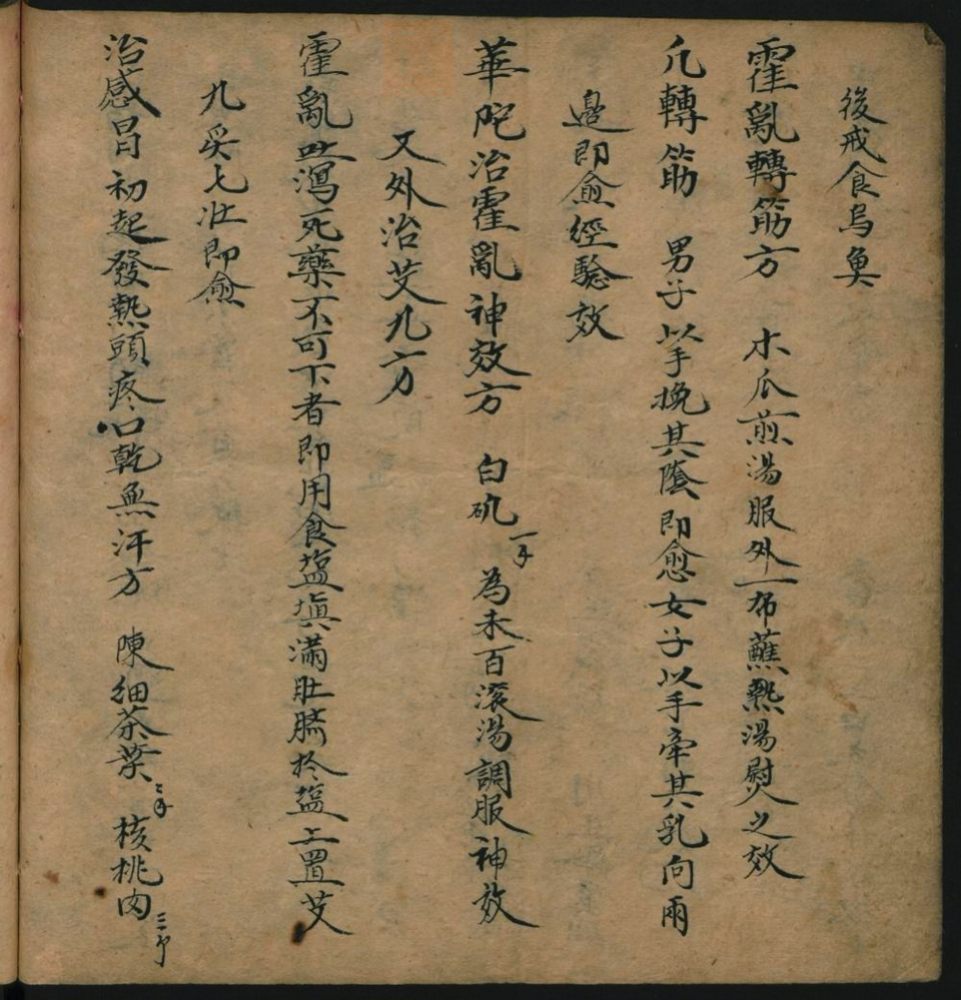 後戒食烏魚
霍亂轉筋方 木瓜煎湯服外一布蘸熱湯熨之效
凢轉筋 男子以手挽其陰即愈女子以手牽其乳向兩
邊即愈經騐效
華陀治霍亂神效方 白矾一錢 為末百滾湯調服神效
又外治艾丸方
霍亂吐瀉死藥不可下者即用食塩填滿肚臍於塩上置艾
丸炙七壯即愈
治感冒初起發熱頭疼口乾無汗方 陳細茶葉二錢 核桃肉三个